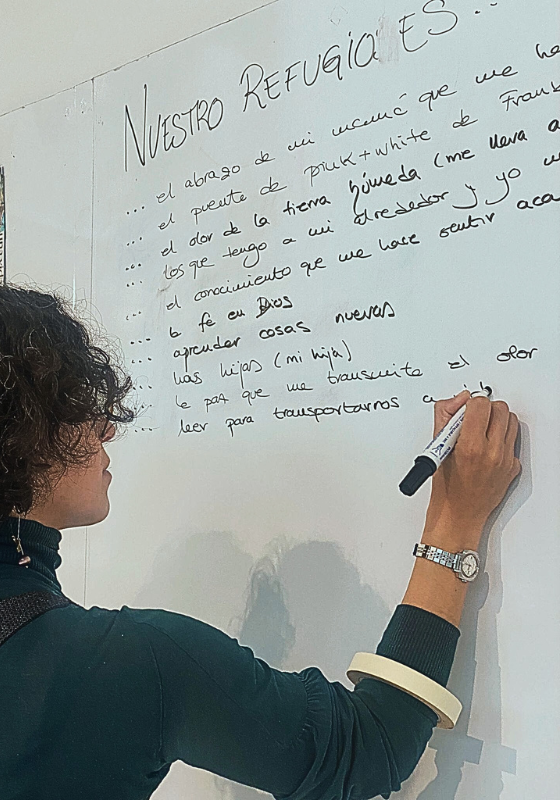 NUESTRO REFUGIO ES...
... el abrazo de mi mamá que me ha
... el puente de pink+white de Frank
... el olor de la tierra húmeda (me lleva a
... los que tengo a mi alrededor y yo
... el conocimiento que me hace sentir aca
... la fe en Dios
... aprender cosas nuevas
... las hijas (mi hija)
... la paz que me transmite el olor
... leer para transportarnos a